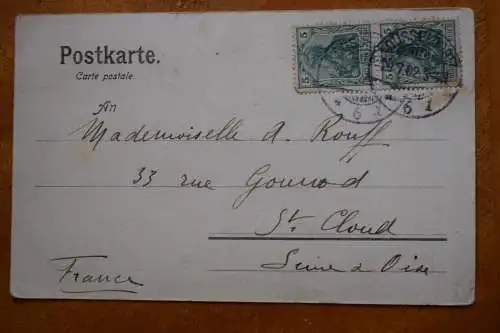 Postkarte.
Carte postale.
5
5
An
Mademoiselle A. Rouff
33 rue Gounod
St. Cloud
Seine & Oise
France
6 1